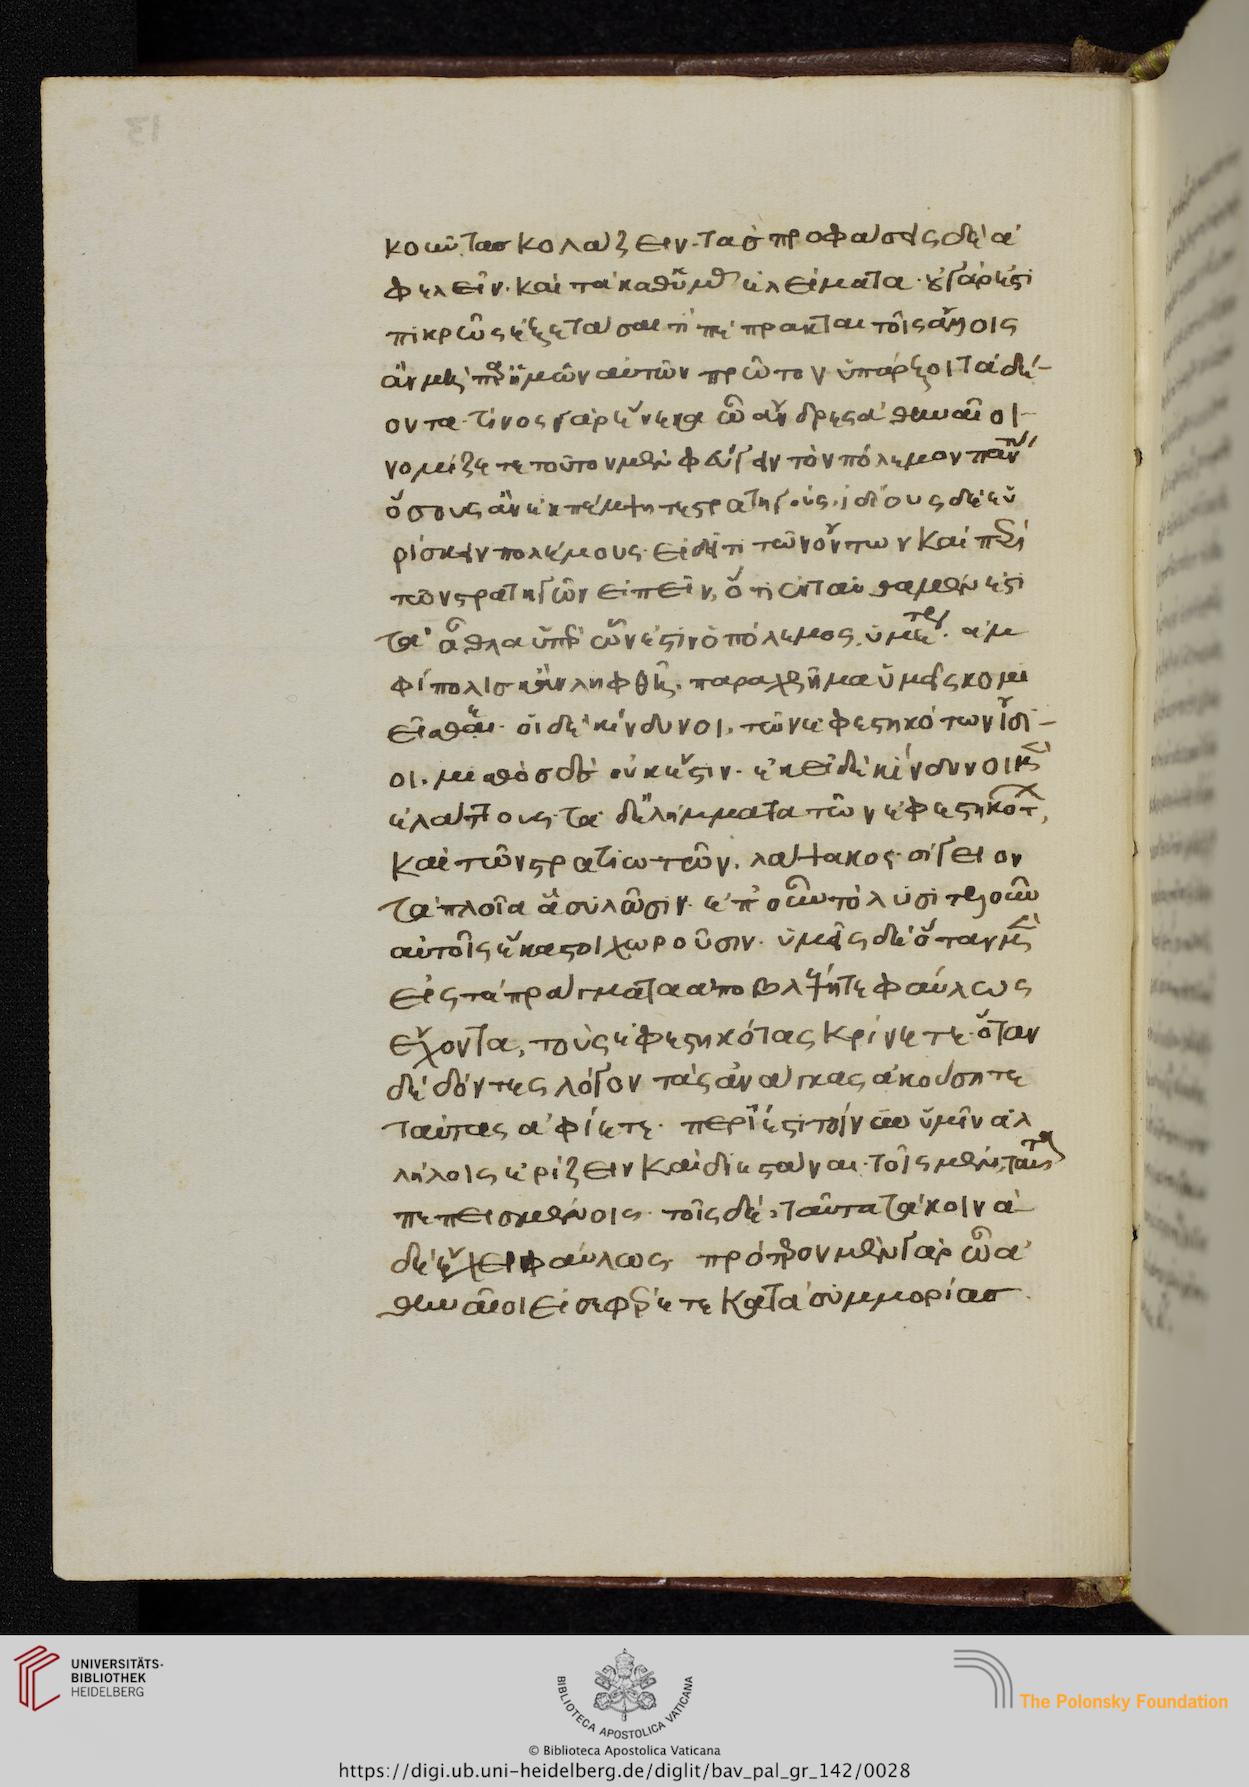 13
κοῦντας κολάζειν. τὰς προφάσεις δὲ ἀ
φελεῖν. καὶ τὰ καθ' ὑμᾶς ἐλλείματα. οὐ γάρ ἐστι
πικρῶς ἐξετάσαι τί πέπρακται τοῖς ἄλλοις
ἂν μὴ παρ' ἡμῶν αὐτῶν πρῶτον ὑπάρξοι τὰ δέ-
οντα. τίνος γὰρ ἕνεκα ὦ ἄνδρες ἀθηναῖοι
νομίζετε τοῦτον μὲν φεύγειν τὸν πόλεμον πάντας
ὅσους ἂν ἐκπέμψητε στρατηγούς. ἰδίους δὲ εὑ
ρίσκειν πολέμους. εἰ δεῖ τι τῶν ὄντων καὶ περὶ
τῶν στρατηγῶν εἰπεῖν, ὅτι ἐνταῦθα μὲν ἐστι
τὰ ἆθλα ὑπὲρ ὧν ἐστιν ὁ πόλεμος, ὑμέτερα. ἀμ
φίπολις κἂν ληφθῇ. παραχρῆμα ὑμεῖς κομι
εῖσθαι. οἱ δὲ κίνδυνοι, τῶν ἐφεστηκότων ἴδι-
οι. μισθὸς δὲ οὐκ ἔστιν. ἐκεῖ δὲ κίνδυνοι μὲν
ἐλάττους τὰ δὲ λήμματα τῶν ἐφεστηκότων,
καὶ τῶν στρατιωτῶν. λάμψακος. σίγειον
τὰ πλοῖα ἃ συλῶσιν. ἐπ' οὖν τὸ λυσιτελοῦν
αὐτοῖς ἕκαστοι χωροῦσιν. ὑμεῖς δὲ ὅταν μὲν
εἰς τὰ πράγματα ἀποβλέψητε φαύλως
ἔχοντα, τοὺς ἐφεστηκότας κρίνετε. ὅταν
δὲ δόντες λόγον τὰς ἀνάγκας ἀκούσητε
ταύτας ἀφίετε. περίεστι τοίνυν ὑμῖν ἀλ
λήλοις ἐρίζειν καὶ διεστάναι. τοῖς μὲν, ταῦτα
πεπεισμένοις. τοῖς δὲ, ταῦτα τὰ κοινὰ
δὲ ἔχειν φαύλως. πρότερον μὲν γὰρ ὦ ἀ
θηναῖοι εἰσεφέρετε κατὰ συμμορίας.
UNIVERSITÄTS-
BIBLIOTHEK
HEIDELBERG
BIBLIOTECA APOSTOLICA VATICANA
The Polonsky Foundation
© Biblioteca Apostolica Vaticana
https://digi.ub.uni-heidelberg.de/diglit/bav_pal_gr_142/0028